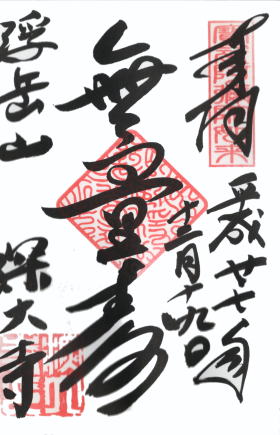 奉拝
平成廿七年
十二月十九日
無量寿
浮岳山
深大寺